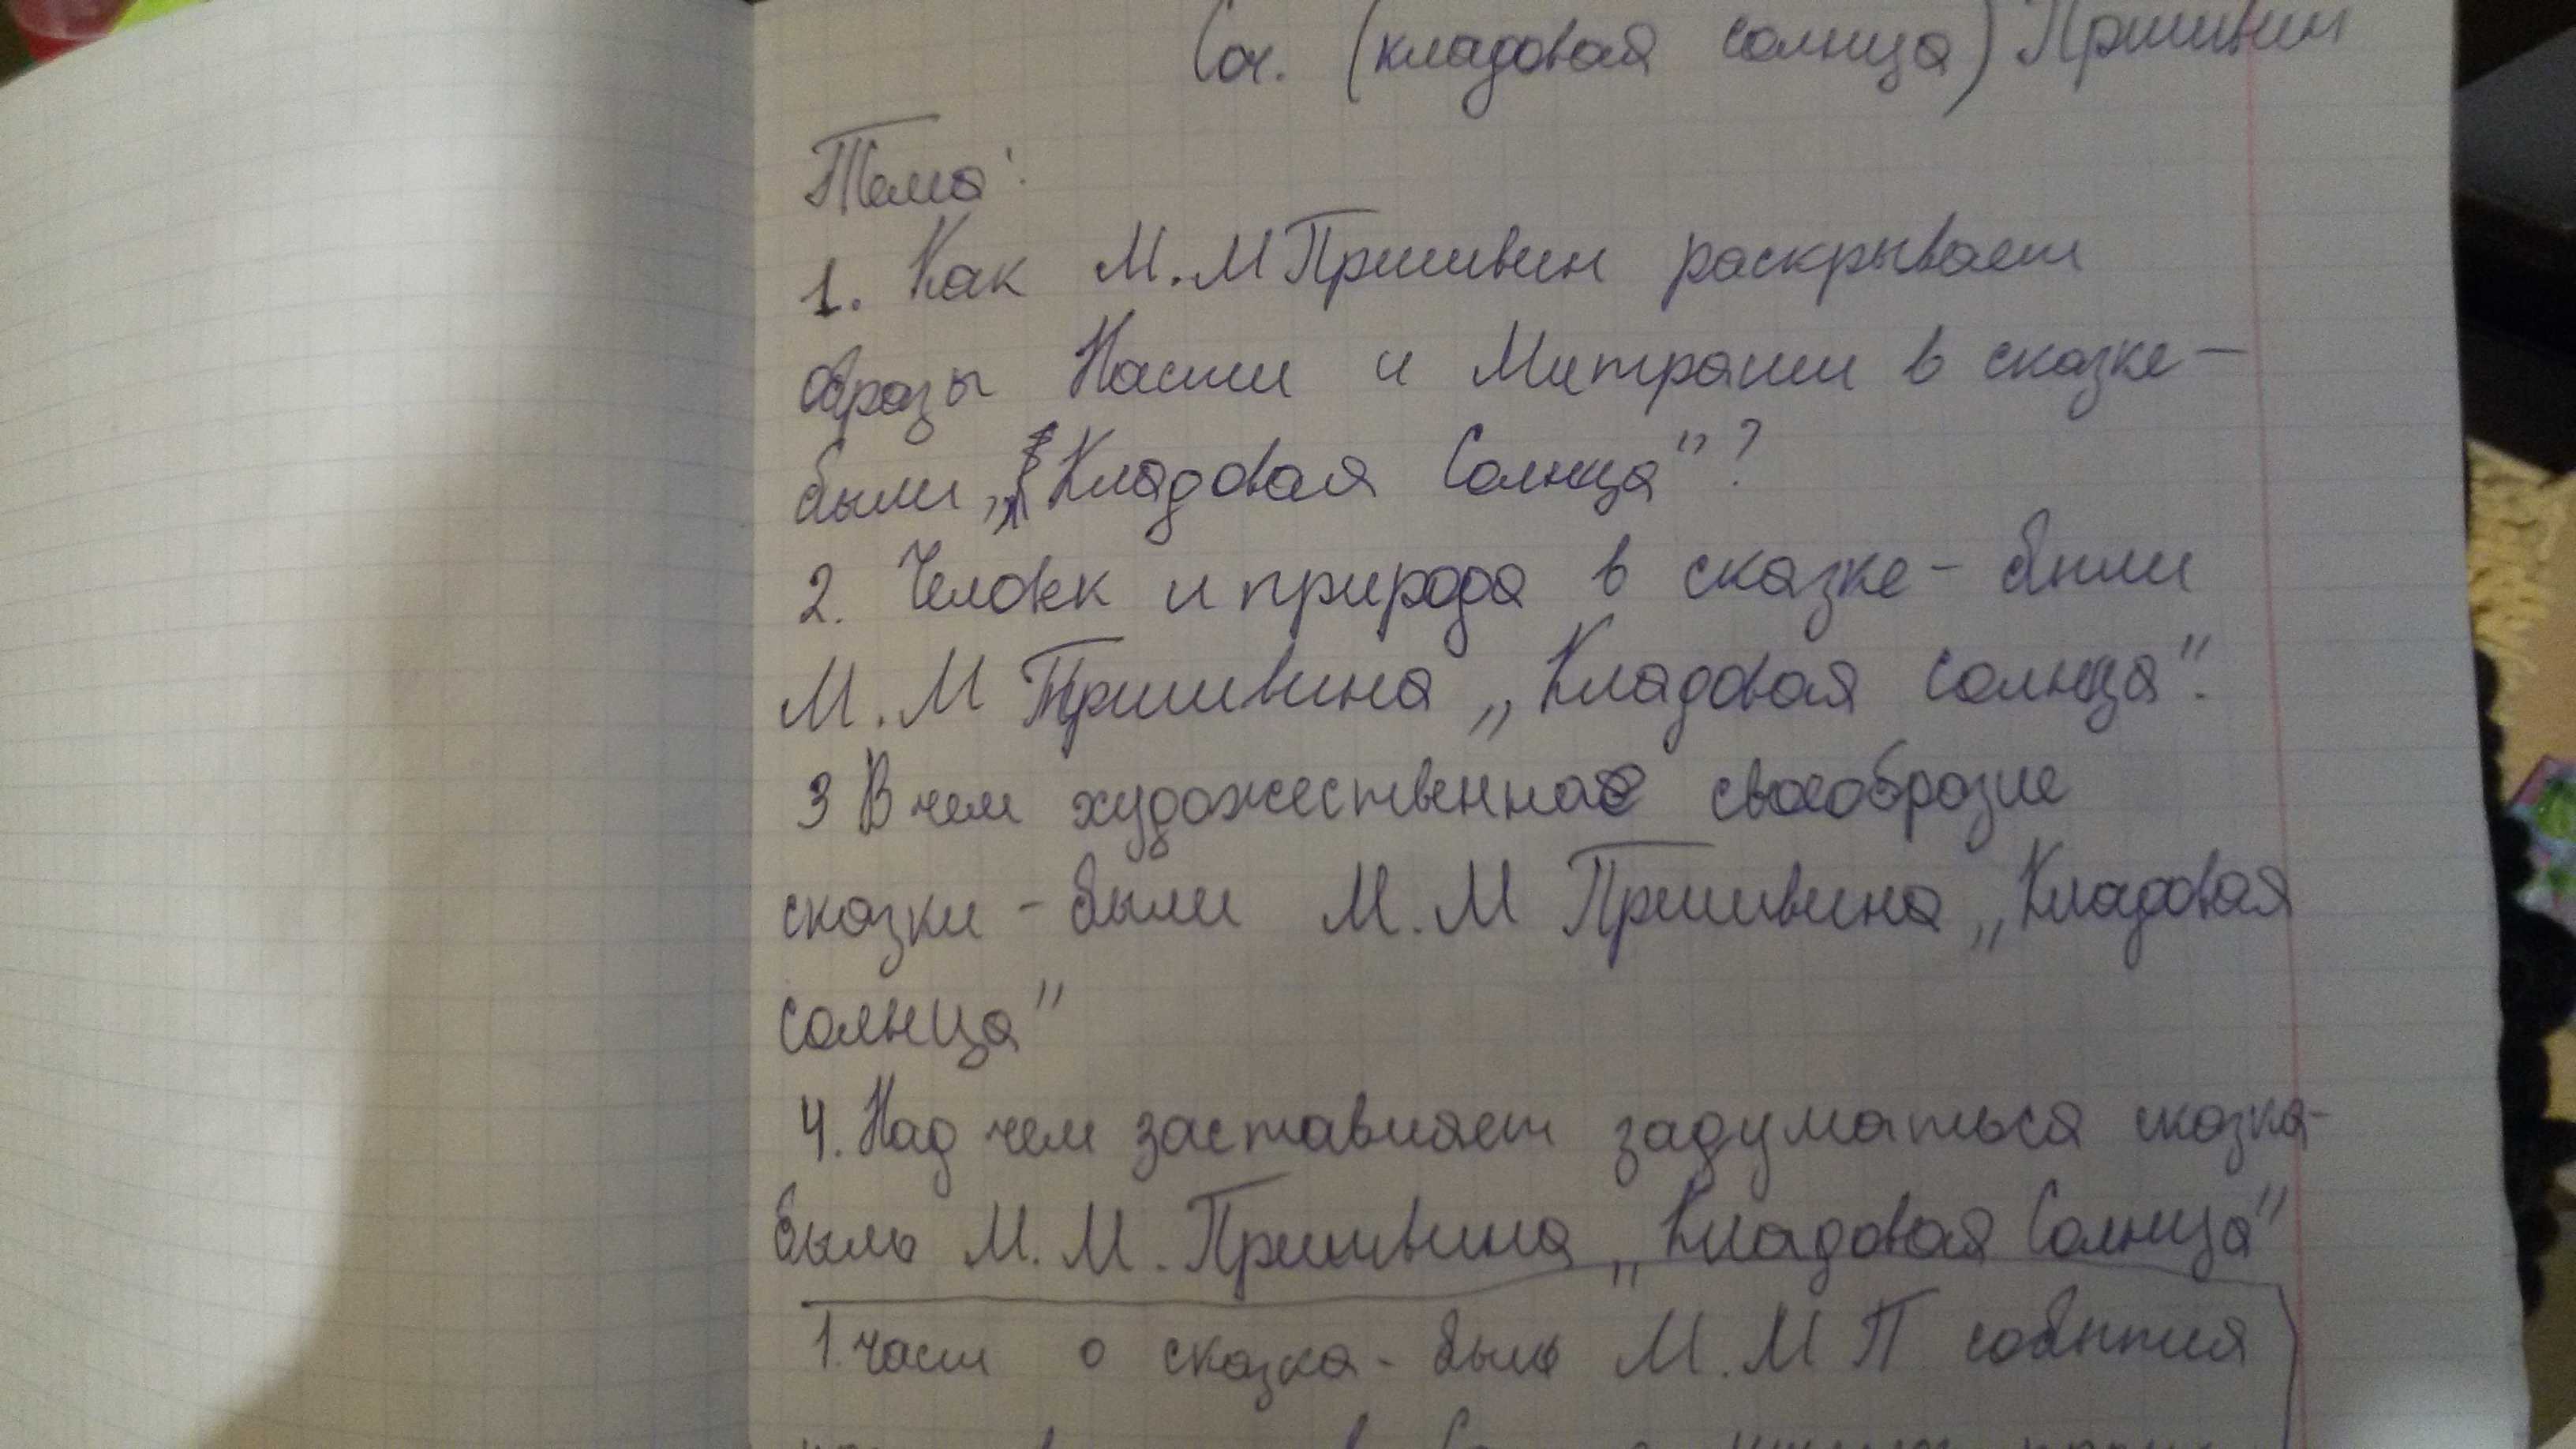 Соч. (кладовая солнца) Пришвин
Тема:
1. Как М.М Пришвин раскрывает
образы Насти и Митраши в сказке-
были „Кладовая Солнца"?
2. Человек и природа в сказке - были
М.М Пришвина „Кладовая солнца".
3 В чем художественное своеобразие
сказки - были М.М Пришвина „Кладовая
солнца"
4. Над чем заставляет задуматься сказка-
быль М.М. Пришвина „Кладовая Солнца"
1. част о сказка - быль М.М П события